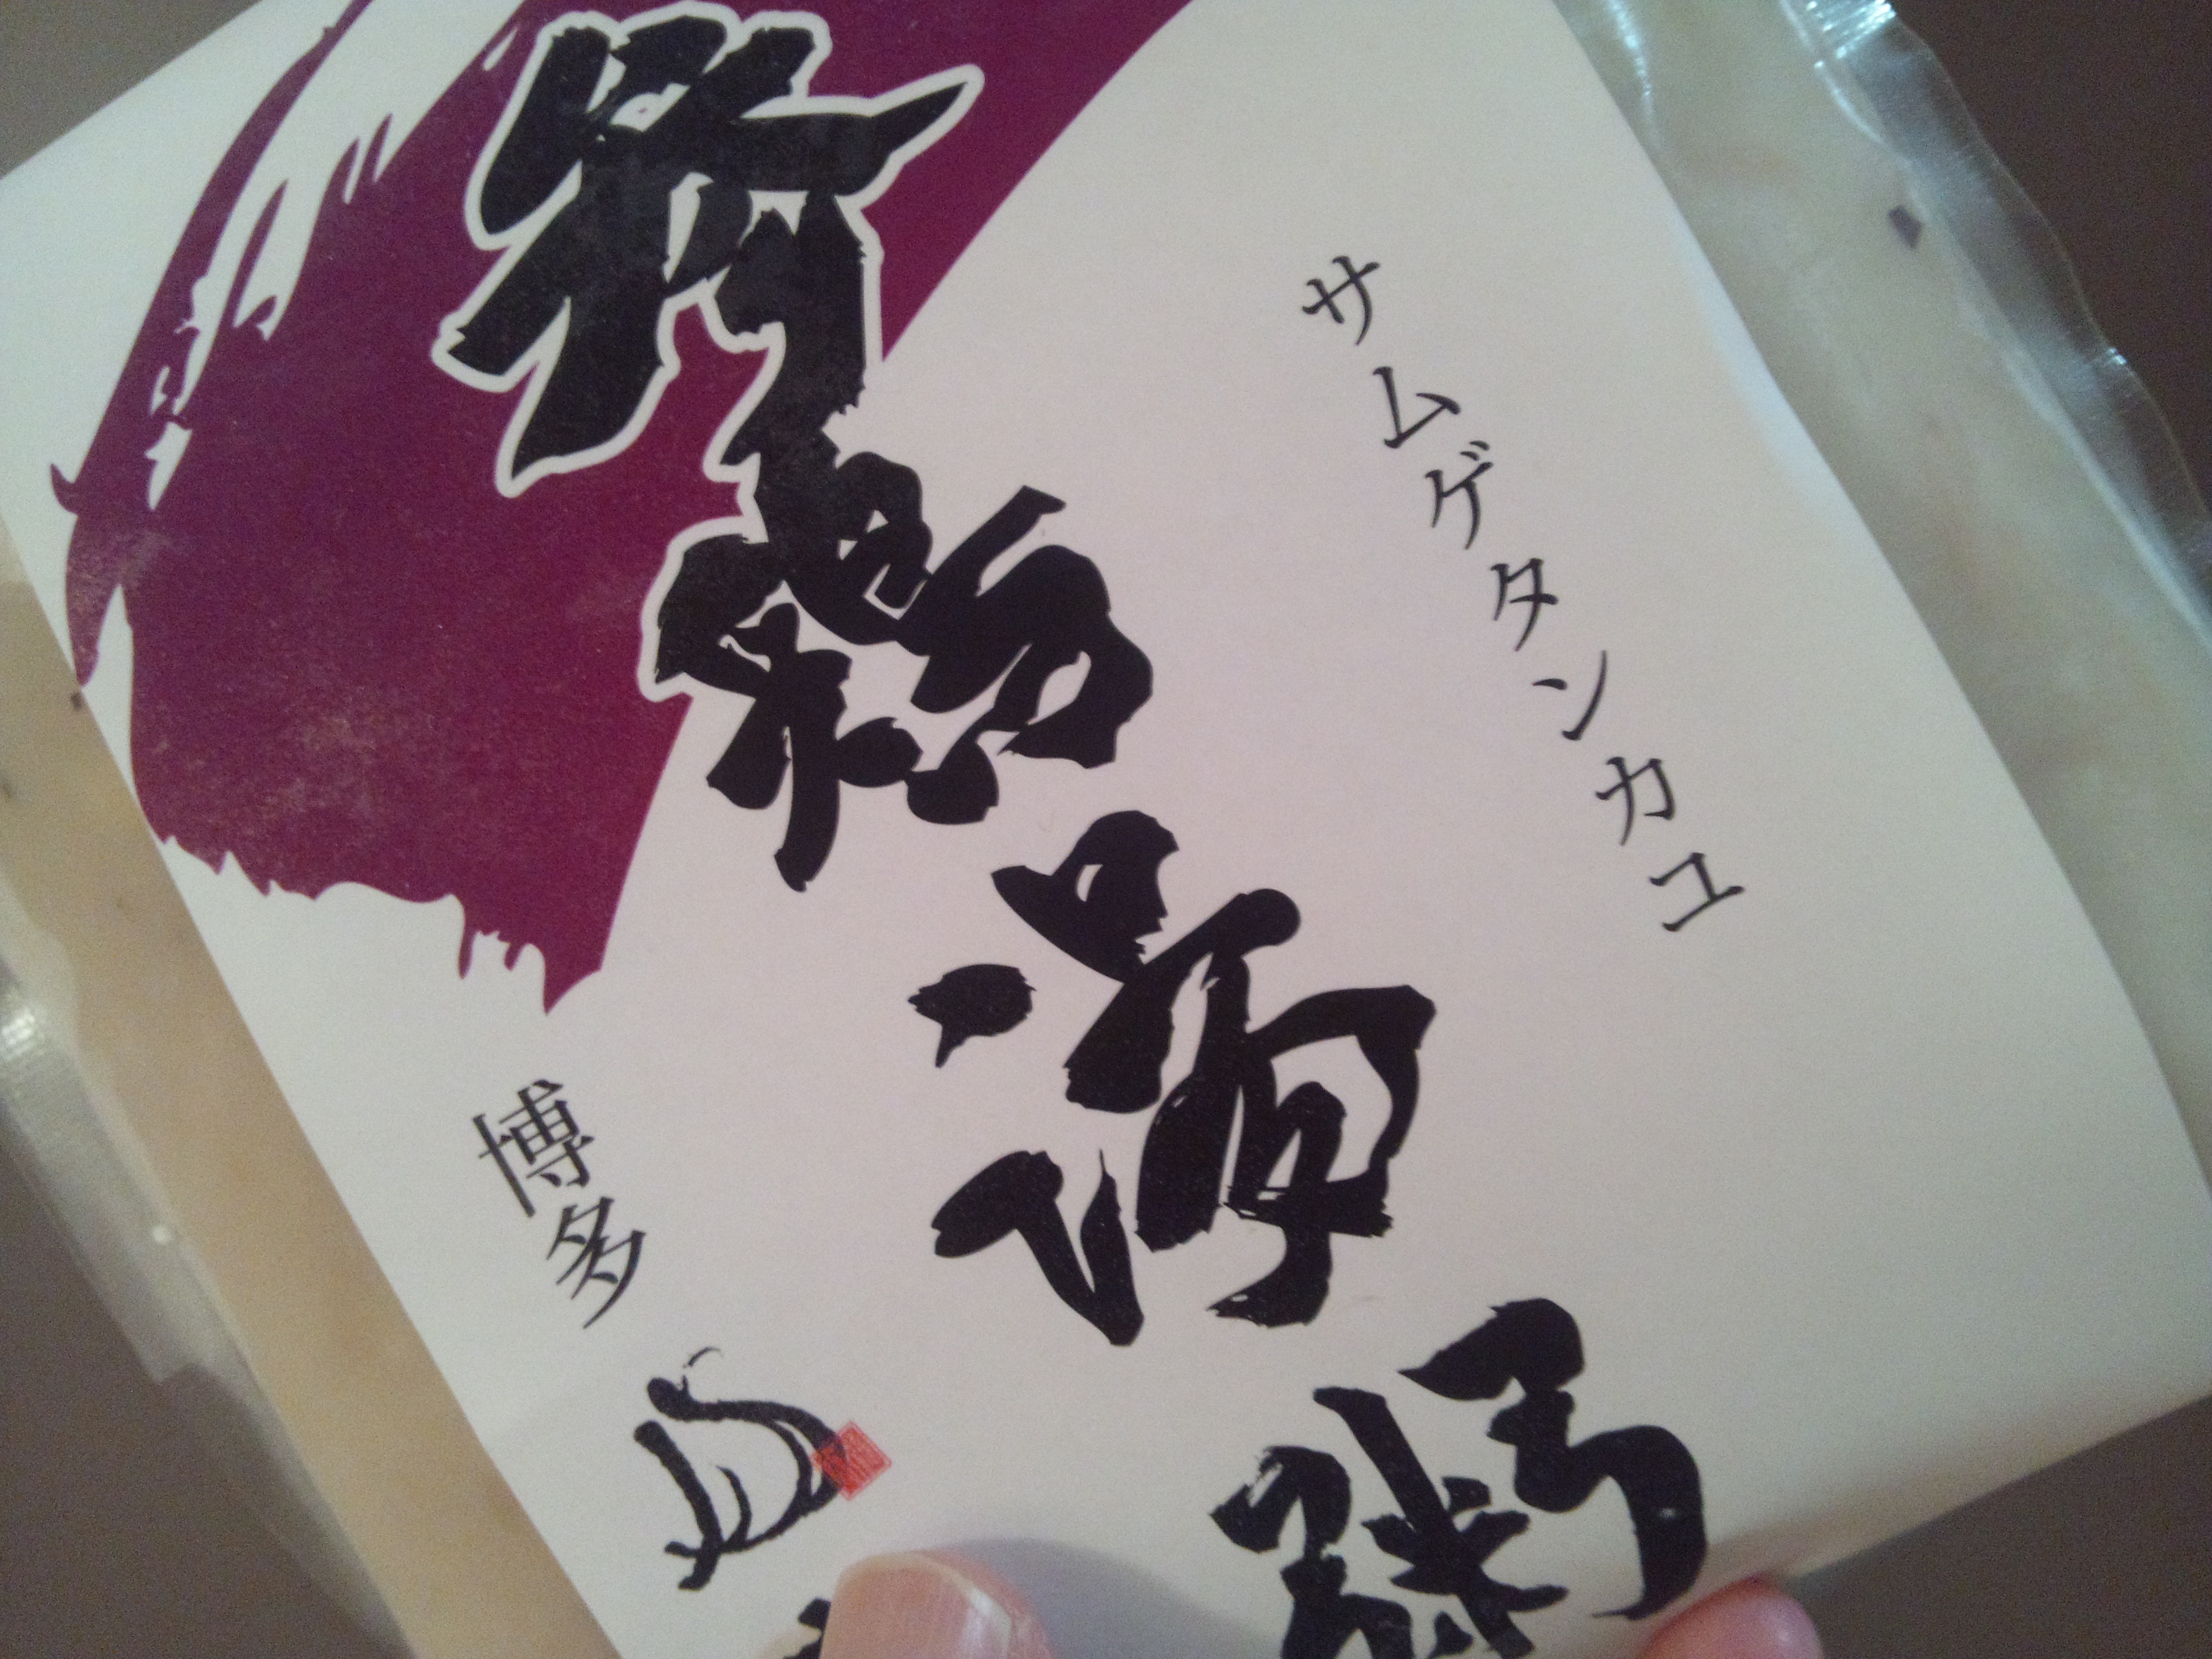 サムゲタンカユ
参鶏湯粥
博多